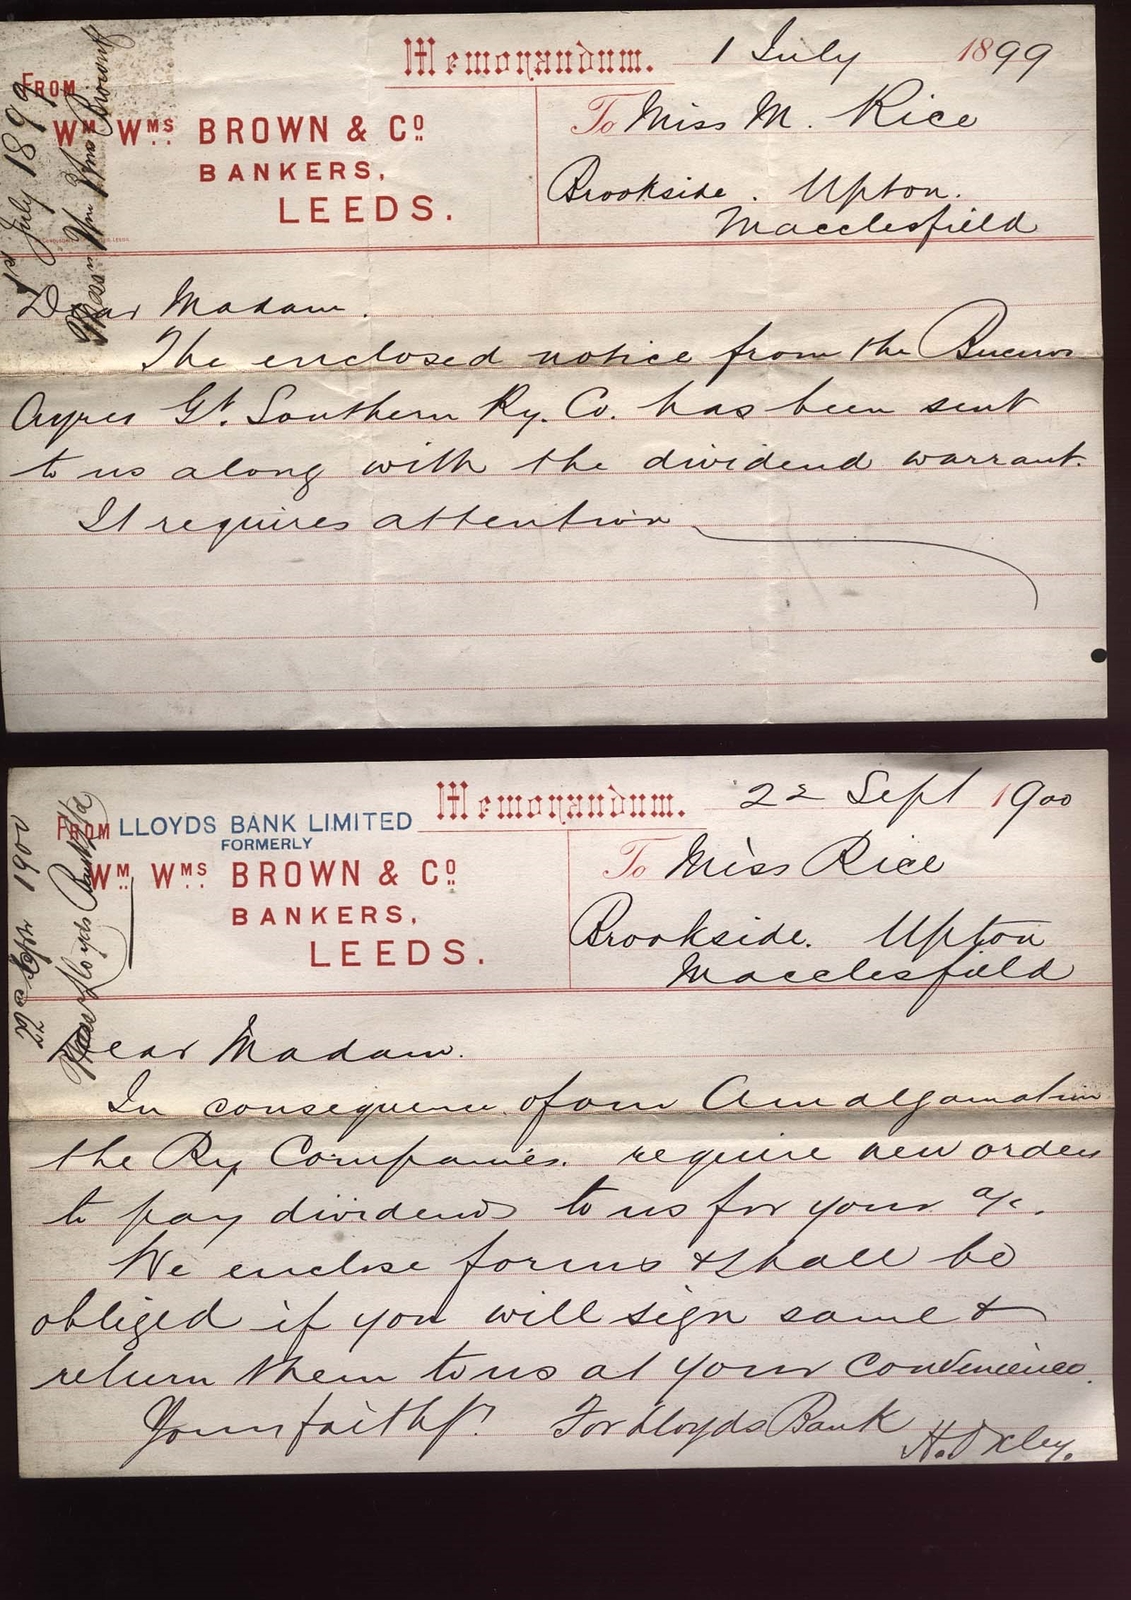 Memorandum. 1 July 1899
FROM
Wm Wms BROWN & Co
BANKERS,
LEEDS.
To Miss M. Rice
Brookside. Upton.
Macclesfield
1st July 1899
Wm Wms Brown &
Dear Madam.
The enclosed notice from the Buenos
Ayres Gt. Southern Ry. Co. has been sent
to us along with the dividend warrant.
It requires attention
Memorandum. 22 Sept 1900
FROM LLOYDS BANK LIMITED
FORMERLY
Wm Wms BROWN & Co
BANKERS,
LEEDS.
To Miss Rice
Brookside. Upton
Macclesfield
22nd Sept 1900
Lloyds Bank Ltd
Dear Madam.
In consequence of our Amalgamation
the Ry Companies. require new orders
to pay dividends to us for your a/c.
We enclose forms & shall be
obliged if you will sign same &
return them to us at your convenience.
Yours faithfy For Lloyds Bank
H. Oxley.